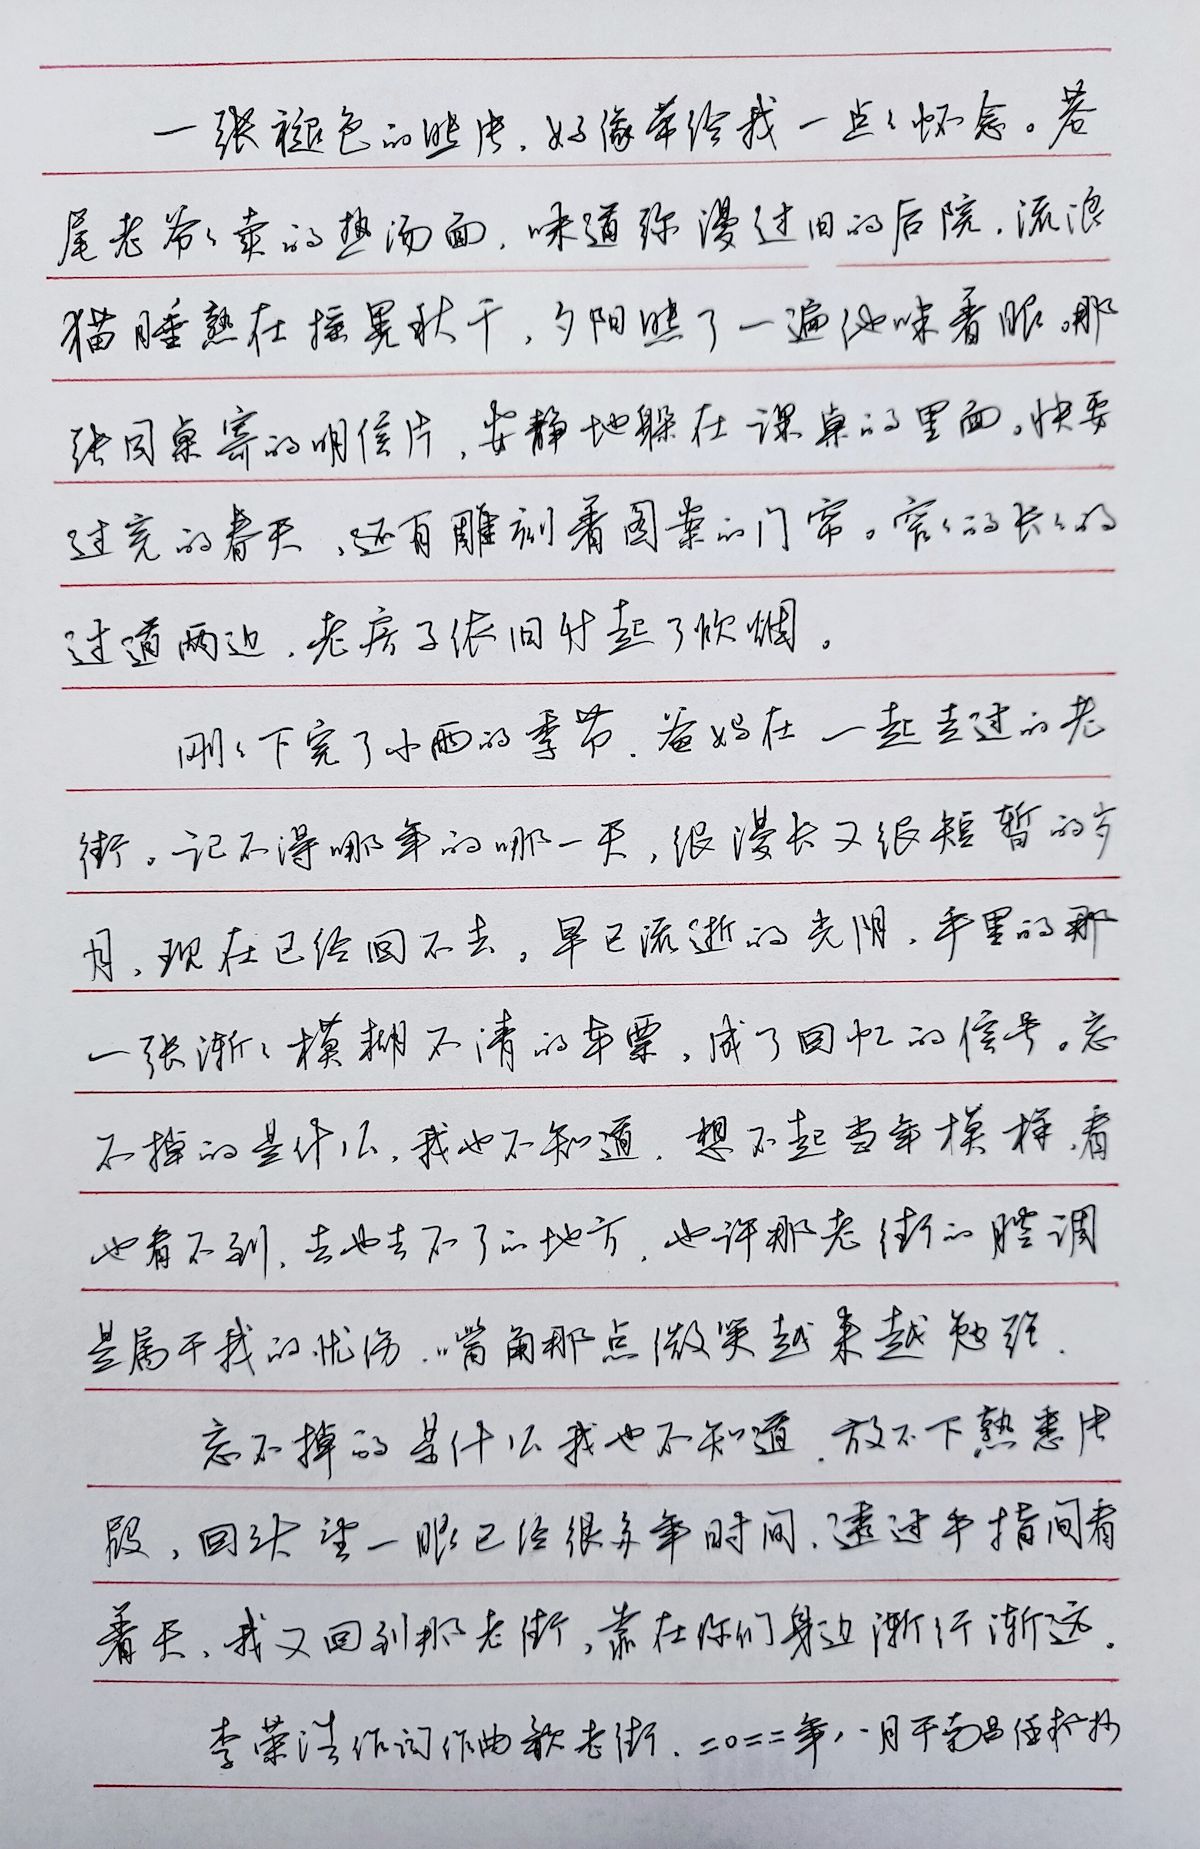 一张褪色的照片，好像带给我一点点怀念。巷
尾老爷爷卖的热汤面，味道弥漫过旧的后院，流浪
猫睡熟在摇晃秋千，夕阳照了一遍他眯着眼。那
张同桌寄的明信片，安静地躲在课桌的里面。快要
过完的春天，还有雕刻着图案的门帘。窄窄的长长的
过道两边，老房子依旧升起了炊烟。
刚刚下完了小雨的季节，爸妈在一起走过的老
街。记不得哪年的哪一天，很漫长又很短暂的岁
月，现在已经回不去。早已流逝的光阴，手里的那
一张渐渐模糊不清的车票，成了回忆的信号。忘
不掉的是什么，我也不知道，想不起当年模样，看
也看不到，去也去不了的地方，也许那老街的腔调
是属于我的忧伤，嘴角那点微笑越来越勉强。
忘不掉的是什么我也不知道，放不下熟悉片
段，回头望一眼已经很多年时间，透过手指间看
着天，我又回到那老街，靠在你们身边渐行渐远。
李荣浩作词作曲歌老街，二〇二二年八月于南昌任